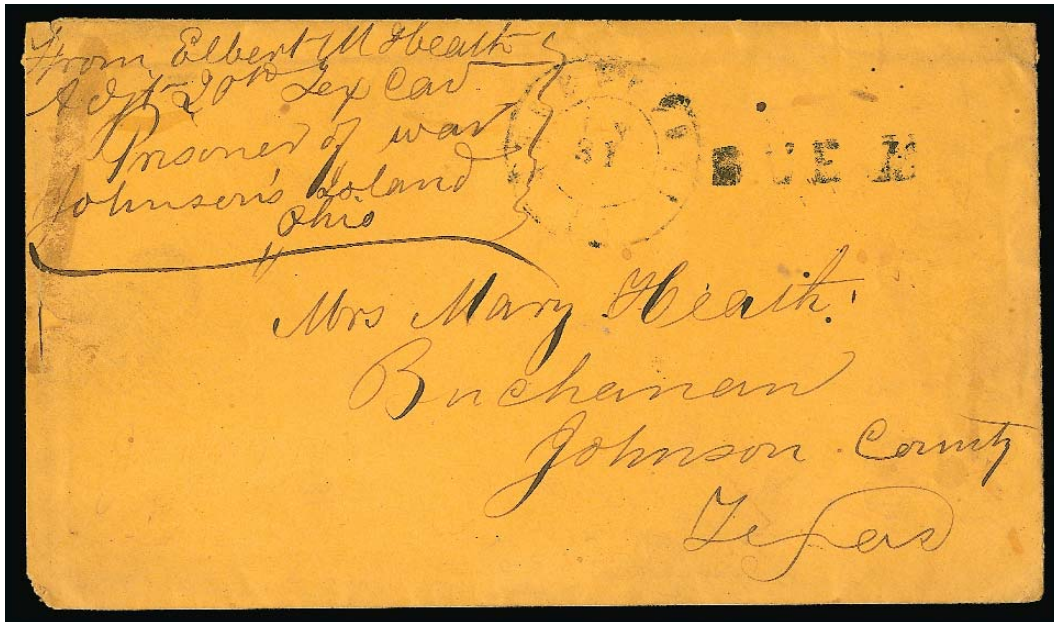 From Elbert M Heath
Adjt 20th Tex Cav
Prisoner of war
Johnson's Island
Ohio
31
DUE
Mrs Mary Heath.
Buchanan
Johnson County
Texas